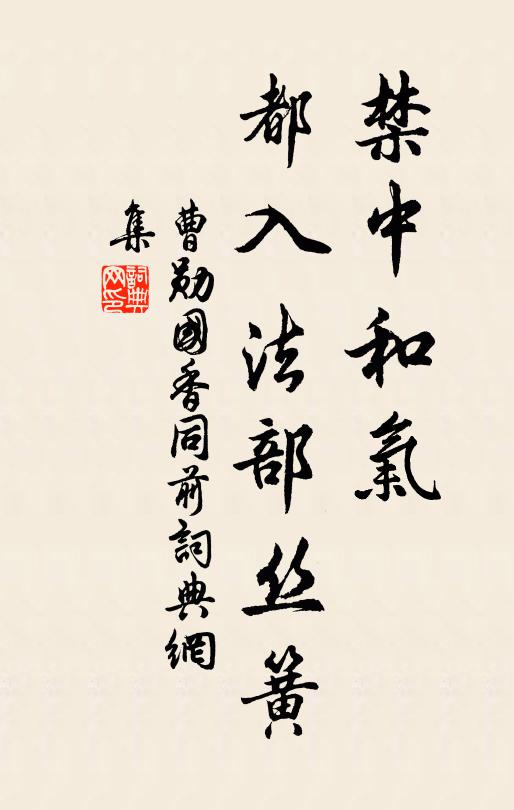 禁中和氣
都入法部丝簧
曹勛國香同前詞典網
集
詞典
网印